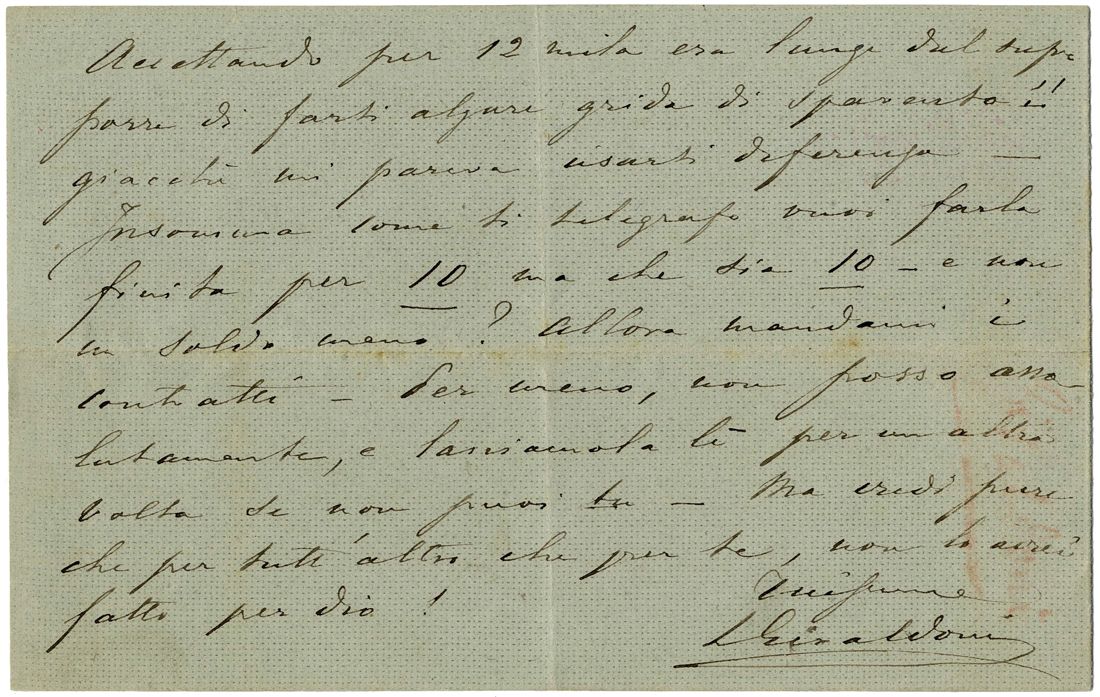 Accettando per 12 mila era lungi dal sup-
porre di farti alzare grida di spavento!!
giacchè mi pareva usarti deferenza —
Insomma come ti telegrafo vuoi farla
finita per 10 ma che sia 10 – e non
un soldo meno? Allora mandami i
contratti – Per meno, non posso asso-
lutamente, e lasciamola lì per un altra
volta se non puoi tu – Ma credi pure
che per tutt'altri che per te, non lo avrei
fatto per dio!
LGiraldoni